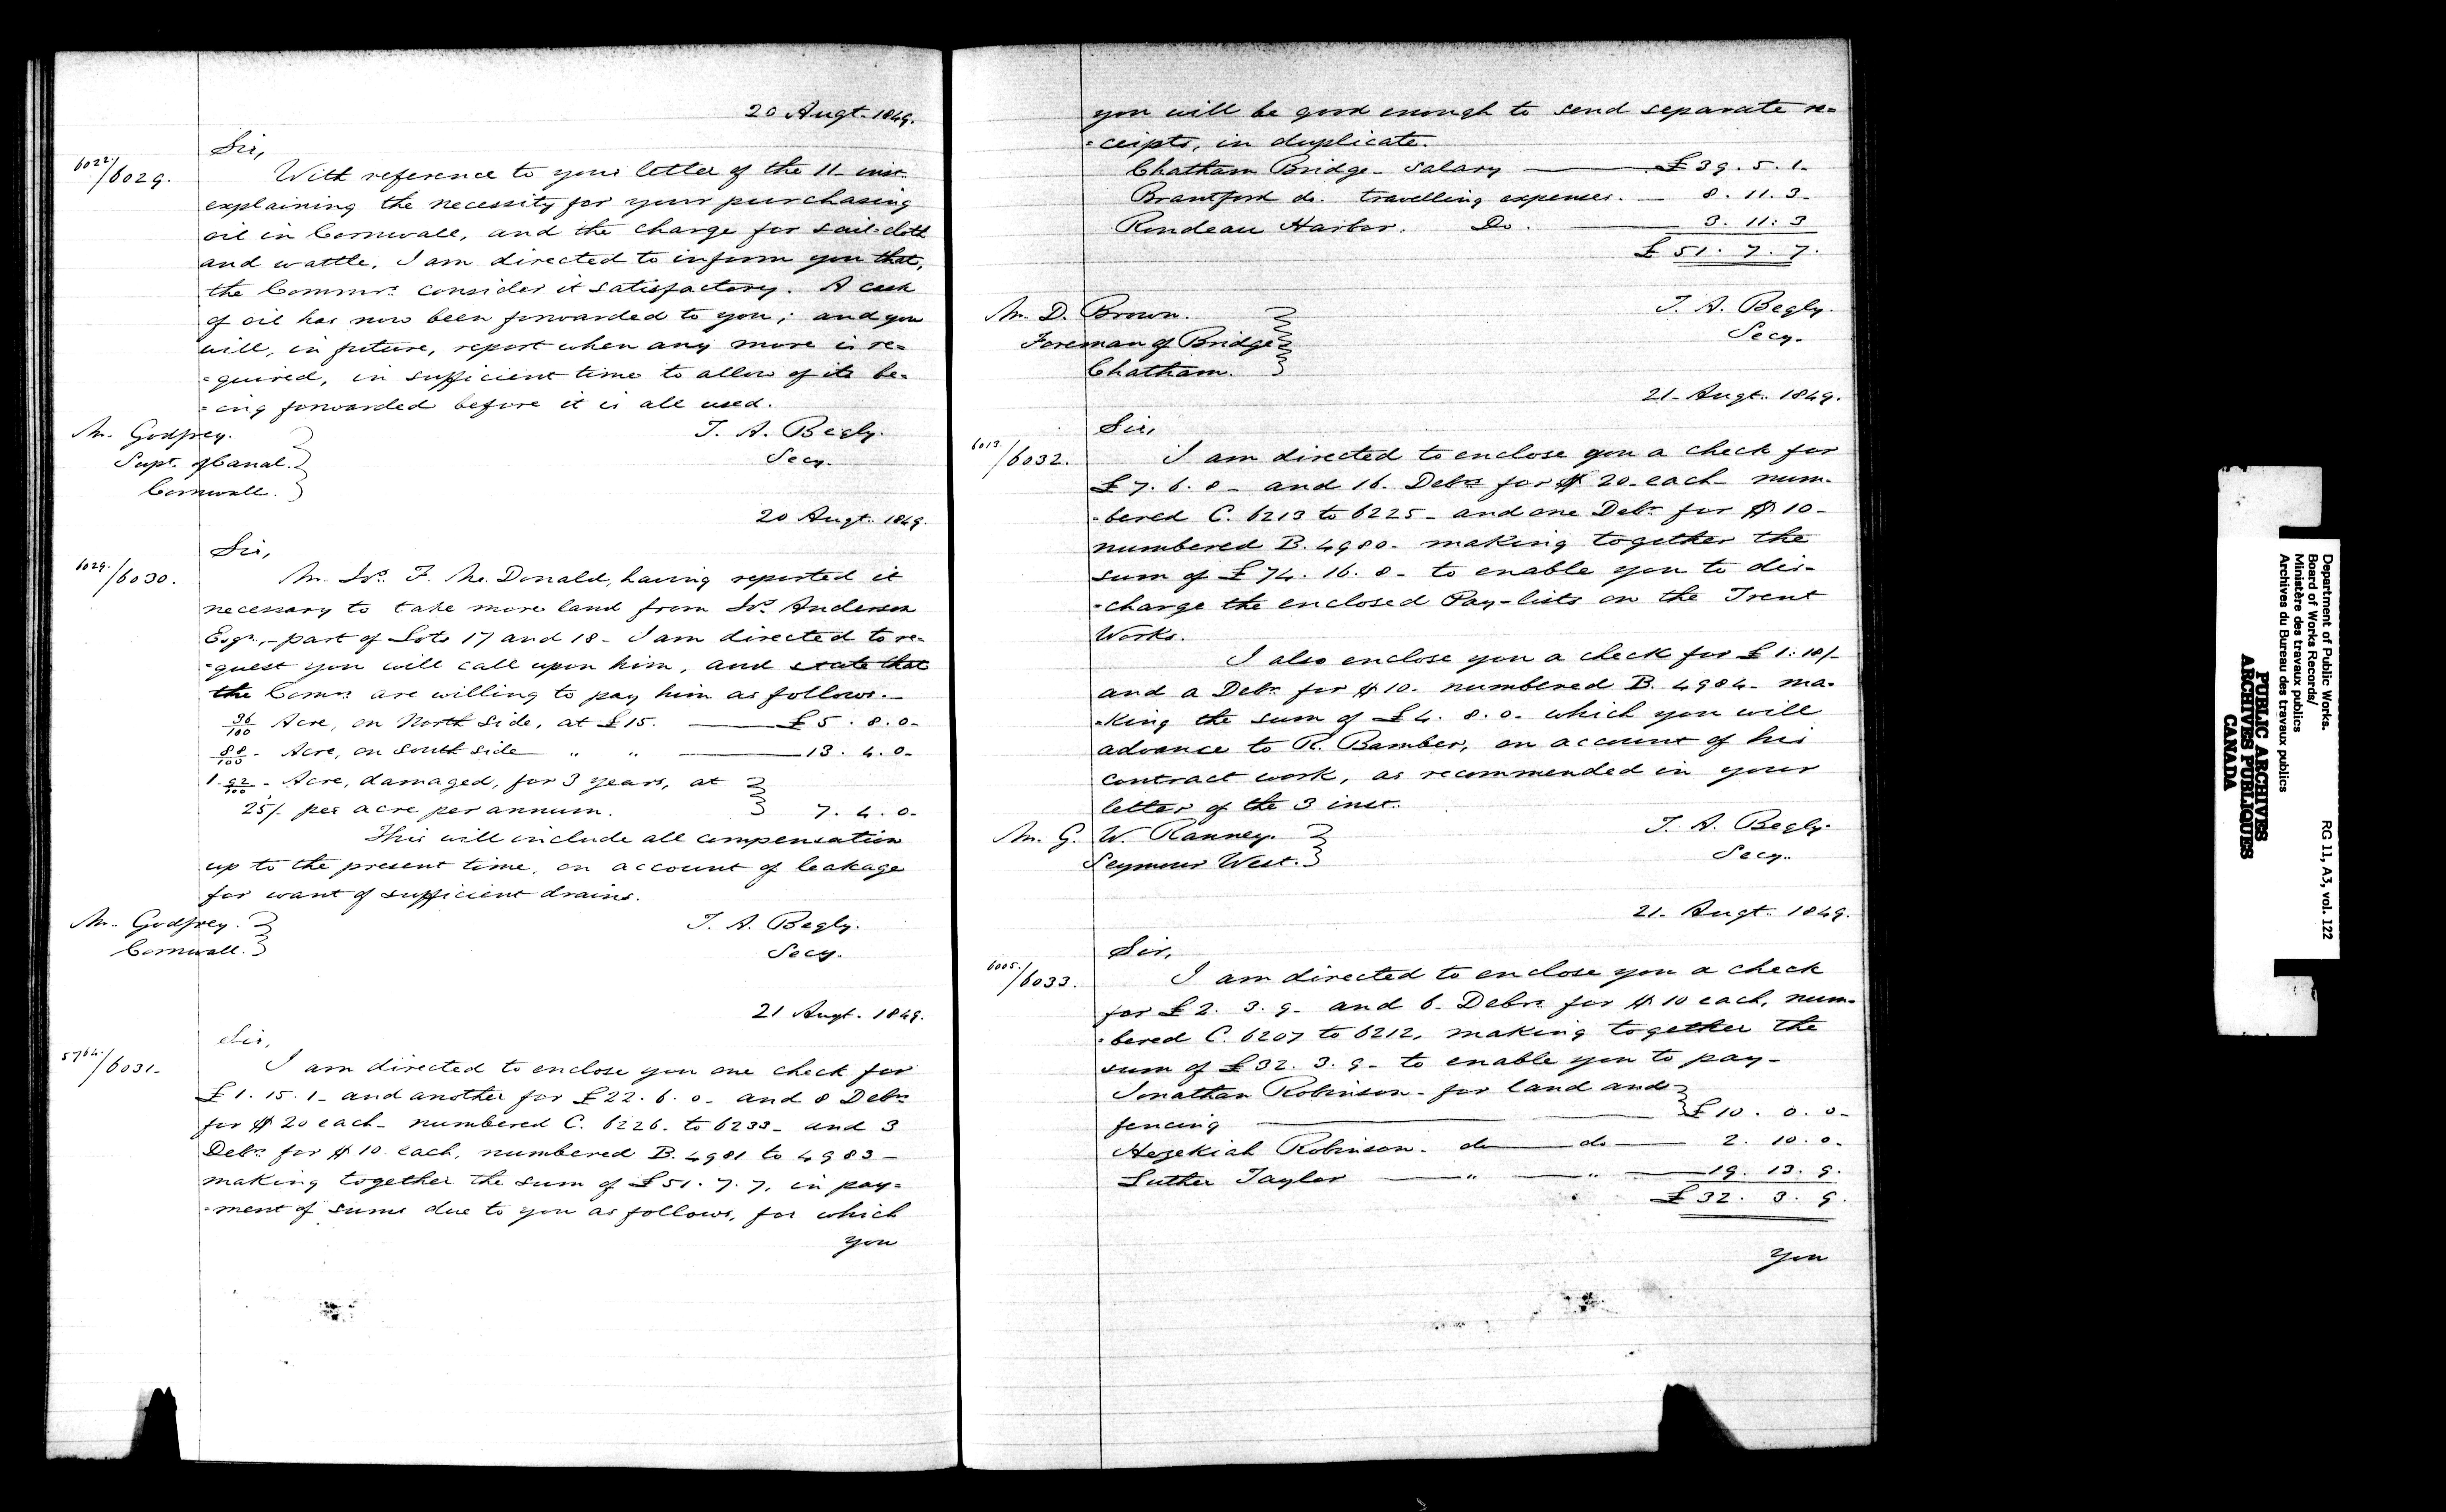 20 Augt. 1849.
Sir,
6022/6029.
With reference to your letter of the 11 inst.
explaining the necessity for your purchasing
oil in Cornwall, and the charge for sail-cloth
and wattle, I am directed to inform you that,
the Commrs. consider it satisfactory. A cask
of oil has now been forwarded to you; and you
will, in future, report when any more is re=
=quired, in sufficient time to allow of its be=
=ing forwarded before it is all used.
Mr. Godfrey.
T. A. Begly.
Supt. of Canal.
Secy.
Cornwall.
20 Augt. 1849.
Sir,
6029./6030.
Mr. Jno. F. McDonald, having reported it
necessary to take more land from Jno. Anderson
Esqr., part of Lots 17 and 18 - I am directed to re=
=quest you will call upon him, and state that
the Comrs. are willing to pay him as follows.-
36/100 Acre, on North side, at £15. £5. 8. 0-
88/100- Acre, on South side " " 13. 4. 0-
1.92/100- Acre, damaged, for 3 years, at
25/- per acre per annum. 7. 4. 0-
This will include all compensation
up to the present time, on account of leakage
for want of sufficient drains.
Mr. Godfrey.
T. A. Begly.
Cornwall.
Secy.
21 Augt. 1849.
Sir,
5764./6031-
I am directed to enclose you one check for
£1. 15. 1- and another for £22. 6. 0- and 8 Debs.
for $20 each- numbered C. 6226. to 6233- and 3
Debs. for $10 each, numbered B. 4981 to 4983-
making together the sum of £51. 7. 7, in pay=
=ment of sums due to you as follows, for which
you
you will be good enough to send separate re=
=ceipts, in duplicate.
Chatham Bridge- Salary £39. 5. 1-
Brantford do. travelling expenses.- 8. 11. 3-
Rondeau Harbor. Do. 3. 11: 3
£51. 7. 7.
Mr. D. Brown.
T. A. Begly.
Foreman of Bridge
Secy.
Chatham.
21- Augt. 1849.
Sir,
6013./6032.
I am directed to enclose you a check for
£7. 6. 8- and 16. Debs for $20- each- num=
=bered C. 6213 to 6225- and one Debr. for $10-
numbered B. 4980- making together the
sum of £74. 16. 8- to enable you to dis=
=charge the enclosed Pay-lists on the Trent
Works.
I also enclose you a check for £1: 18/-
and a Debr. for $10- numbered B. 4984- ma=
=king the sum of £4. 8. 0- which you will
advance to R. Bamber, on account of his
contract work, as recommended in your
letter of the 3 inst.
Mr. G. W. Ranney.
T. A. Begly.
Seymour West.
Secy.
21- Augt. 1849.
Sir,
6005./6033.
I am directed to enclose you a check
for £2. 3. 9- and 6- Debrs for $10 each, num=
=bered C. 6207 to 6212, making together the
sum of £32. 3. 9- to enable you to pay-
Jonathan Robinson- for land and
fencing £10. 0. 0-
Hezekiah Robinson- do do 2. 10. 0-
Luther Taylor " " 19. 13. 9.
£32. 3. 9.
you
Department of Public Works.
Board of Works Records/
Ministère des travaux publics
Archives du Bureau des travaux publics
RG 11, A3, vol. 122
PUBLIC ARCHIVES
ARCHIVES PUBLIQUES
CANADA